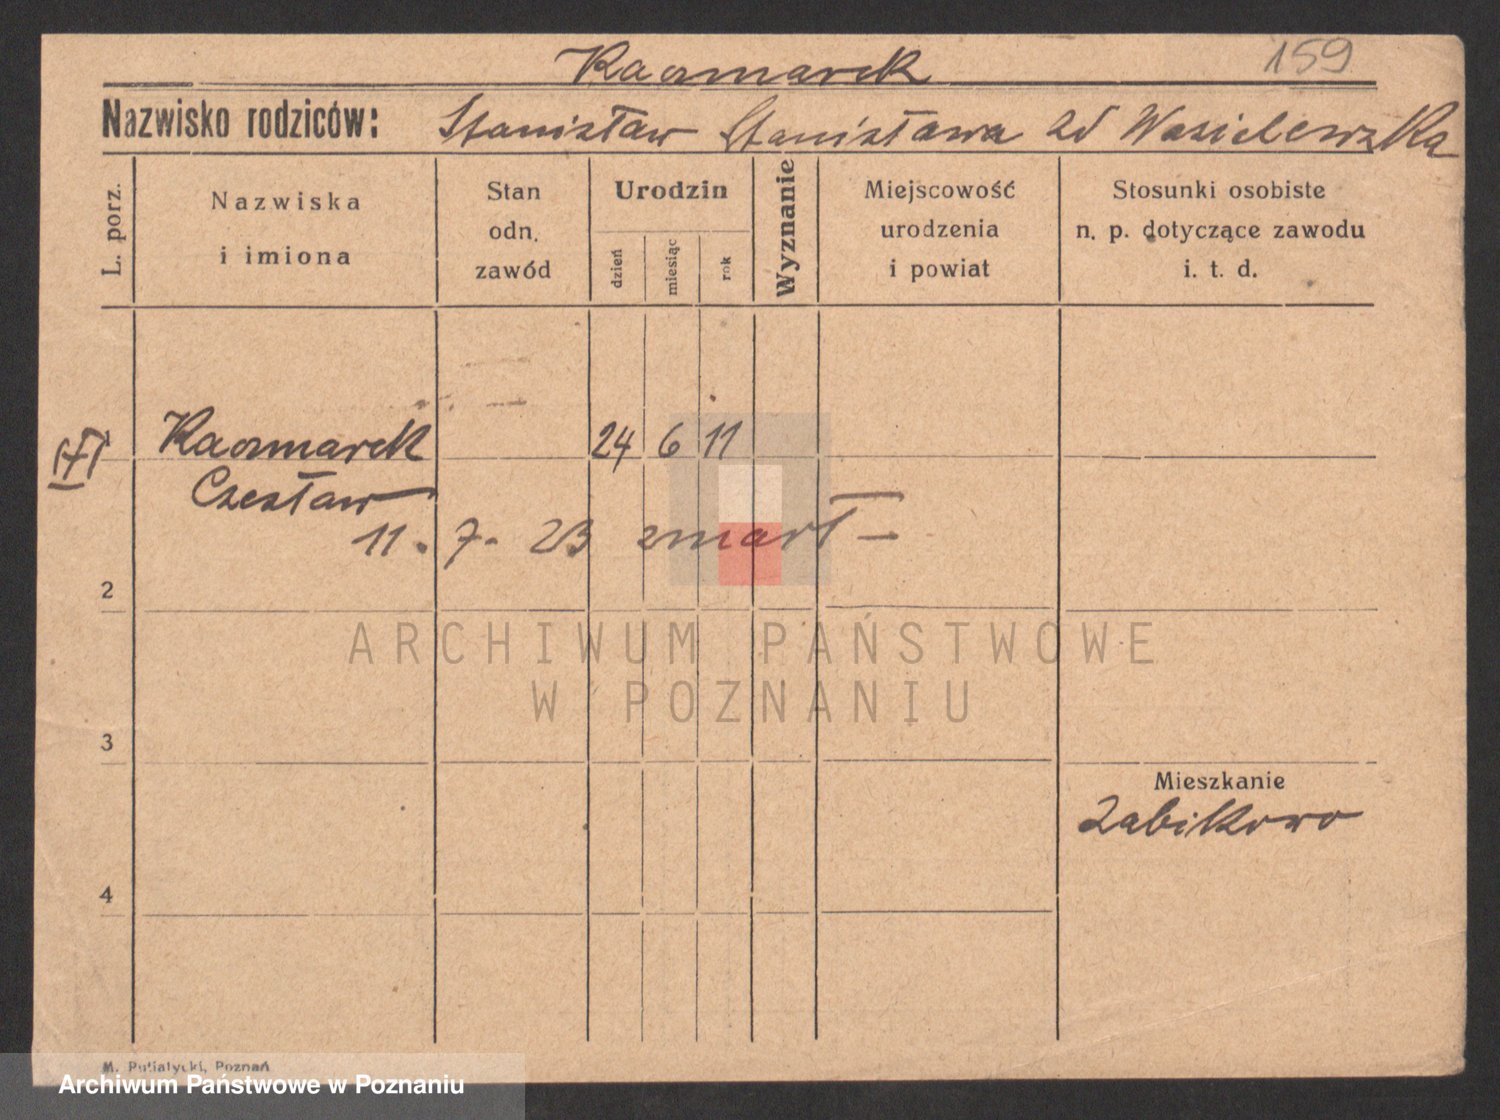 159
Kaczmarek
Nazwisko rodziców: Stanisław Stanisława zd Wasielewska
L. porz.
Nazwiska
i imiona
Stan
odn.
zawód
Urodzin
dzień
miesiąc
rok
Wyznanie
Miejscowość
urodzenia
i powiat
Stosunki osobiste
n. p. dotyczące zawodu
i. t. d.
1 Kaczmarek 24 6 11
Czesław
11. 7. 23 zmarł
2
3
4
Mieszkanie
Żabikowo
ARCHIWUM PAŃSTWOWE
W POZNANIU
M. Putiatycki, Poznań
Archiwum Państwowe w Poznaniu